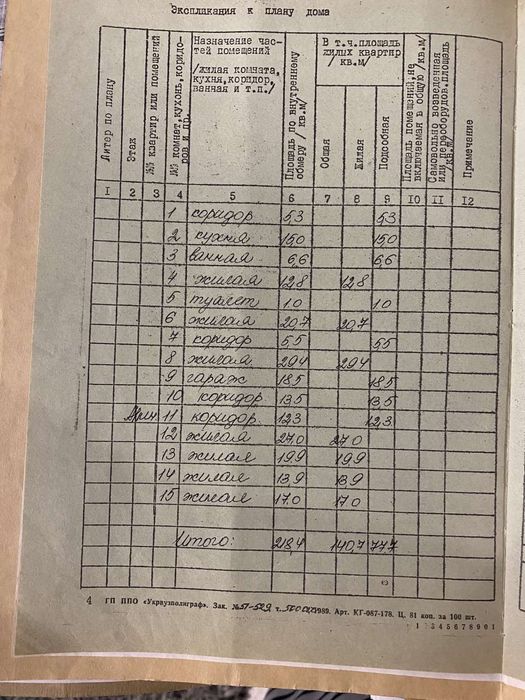 Экспликация к плану дома
Литер по плану
Этаж
№№ квартир или помещений
№№ комнат, кухонь, коридоров и пр.
Назначение частей помещений /жилая комната, кухня, коридор, ванная и т.п./
Площадь по внутреннему обмеру /кв.м/
В т.ч. площадь жилых квартир /кв.м/
Общая
Жилая
Подсобная
Площадь помещений, не включаемая в общую /кв.м/
Самовольно возведенная или переоборудов. площадь /кв.м/
Примечание
1 2 3 4 5 6 7 8 9 10 11 12
1 коридор 5,3 5,3
2 кухня 15,0 15,0
3 ванная 6,6 6,6
4 жилая 12,8 12,8
5 туалет 1,0 1,0
6 жилая 20,7 20,7
7 коридор 5,5 5,5
8 жилая 29,4 29,4
9 гараж 18,5 18,5
10 коридор 13,5 13,5
11 коридор 12,3 12,3
12 жилая 27,0 27,0
13 жилая 19,9 19,9
14 жилая 13,9 13,9
15 жилая 17,0 17,0
Итого: 218,4 140,7 77,7
4 ГП ППО «Укрвузполиграф». Зак. № 1989. Арт. КГ-087-178. Ц. 81 коп. за 100 шт.
1 2 3 4 5 6 7 8 9 0 1